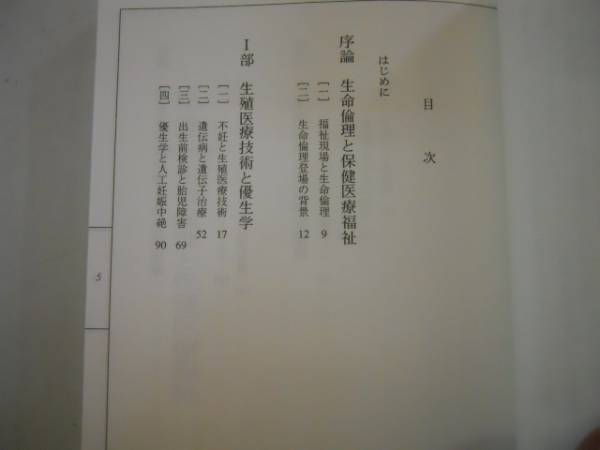 目次
はじめに
序論 生命倫理と保健医療福祉
［一］ 福祉現場と生命倫理 9
［二］ 生命倫理登場の背景 12
Ⅰ部 生殖医療技術と優生学
［一］ 不妊と生殖医療技術 17
［二］ 遺伝病と遺伝子治療 52
［三］ 出生前検診と胎児障害 69
［四］ 優生学と人工妊娠中絶 90
5